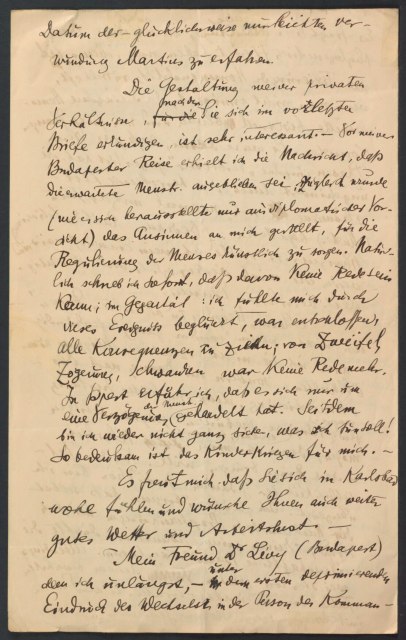 Datum der – glücklicherweise nur leichten Ver-
wundung Martins zu erfahren.
Die Gestaltung meiner privaten
nach den
Verhältnisse, für die Sie sich im vorletzten
Briefe erkundigen, ist sehr interessant. – Vor meiner
Budapester Reise erhielt ich die Nachricht, daß
die erwartete Menstr. ausgeblieben sei, zugleich wurde
(wie es sich herausstellte nur aus diplomatischer Vor-
sicht) das Ansinnen an mich gestellt, für die
Regulierung der Menses künstlich zu sorgen. Natür-
lich schrieb ich sofort, daß davon keine Rede sein
kann; im Gegenteil: ich fühlte mich durch
dieses Ereignis beglückt, war entschlossen,
alle Konsequenzen zu ziehen; von Zweifel,
Zögerung, Schwanken war keine Rede mehr.
In Pest erfuhr ich, daß es sich nur um
eine Verzögerung der Menstr. gehandelt hat. Seitdem
bin ich wieder nicht ganz sicher, was ich tun soll!
So bedeutsam ist das Kinderkriegen für mich. –
Es freut mich daß Sie sich in Karlsbad
wohl fühlen und wünsche Ihnen auch weiter
gutes Wetter und Arbeitslust. –
Mein Freund Dr Lévy (Budapest)
den ich unlängst, – unter dem ersten deprimierenden
Eindruck des Wechsels in der Person des Komman-